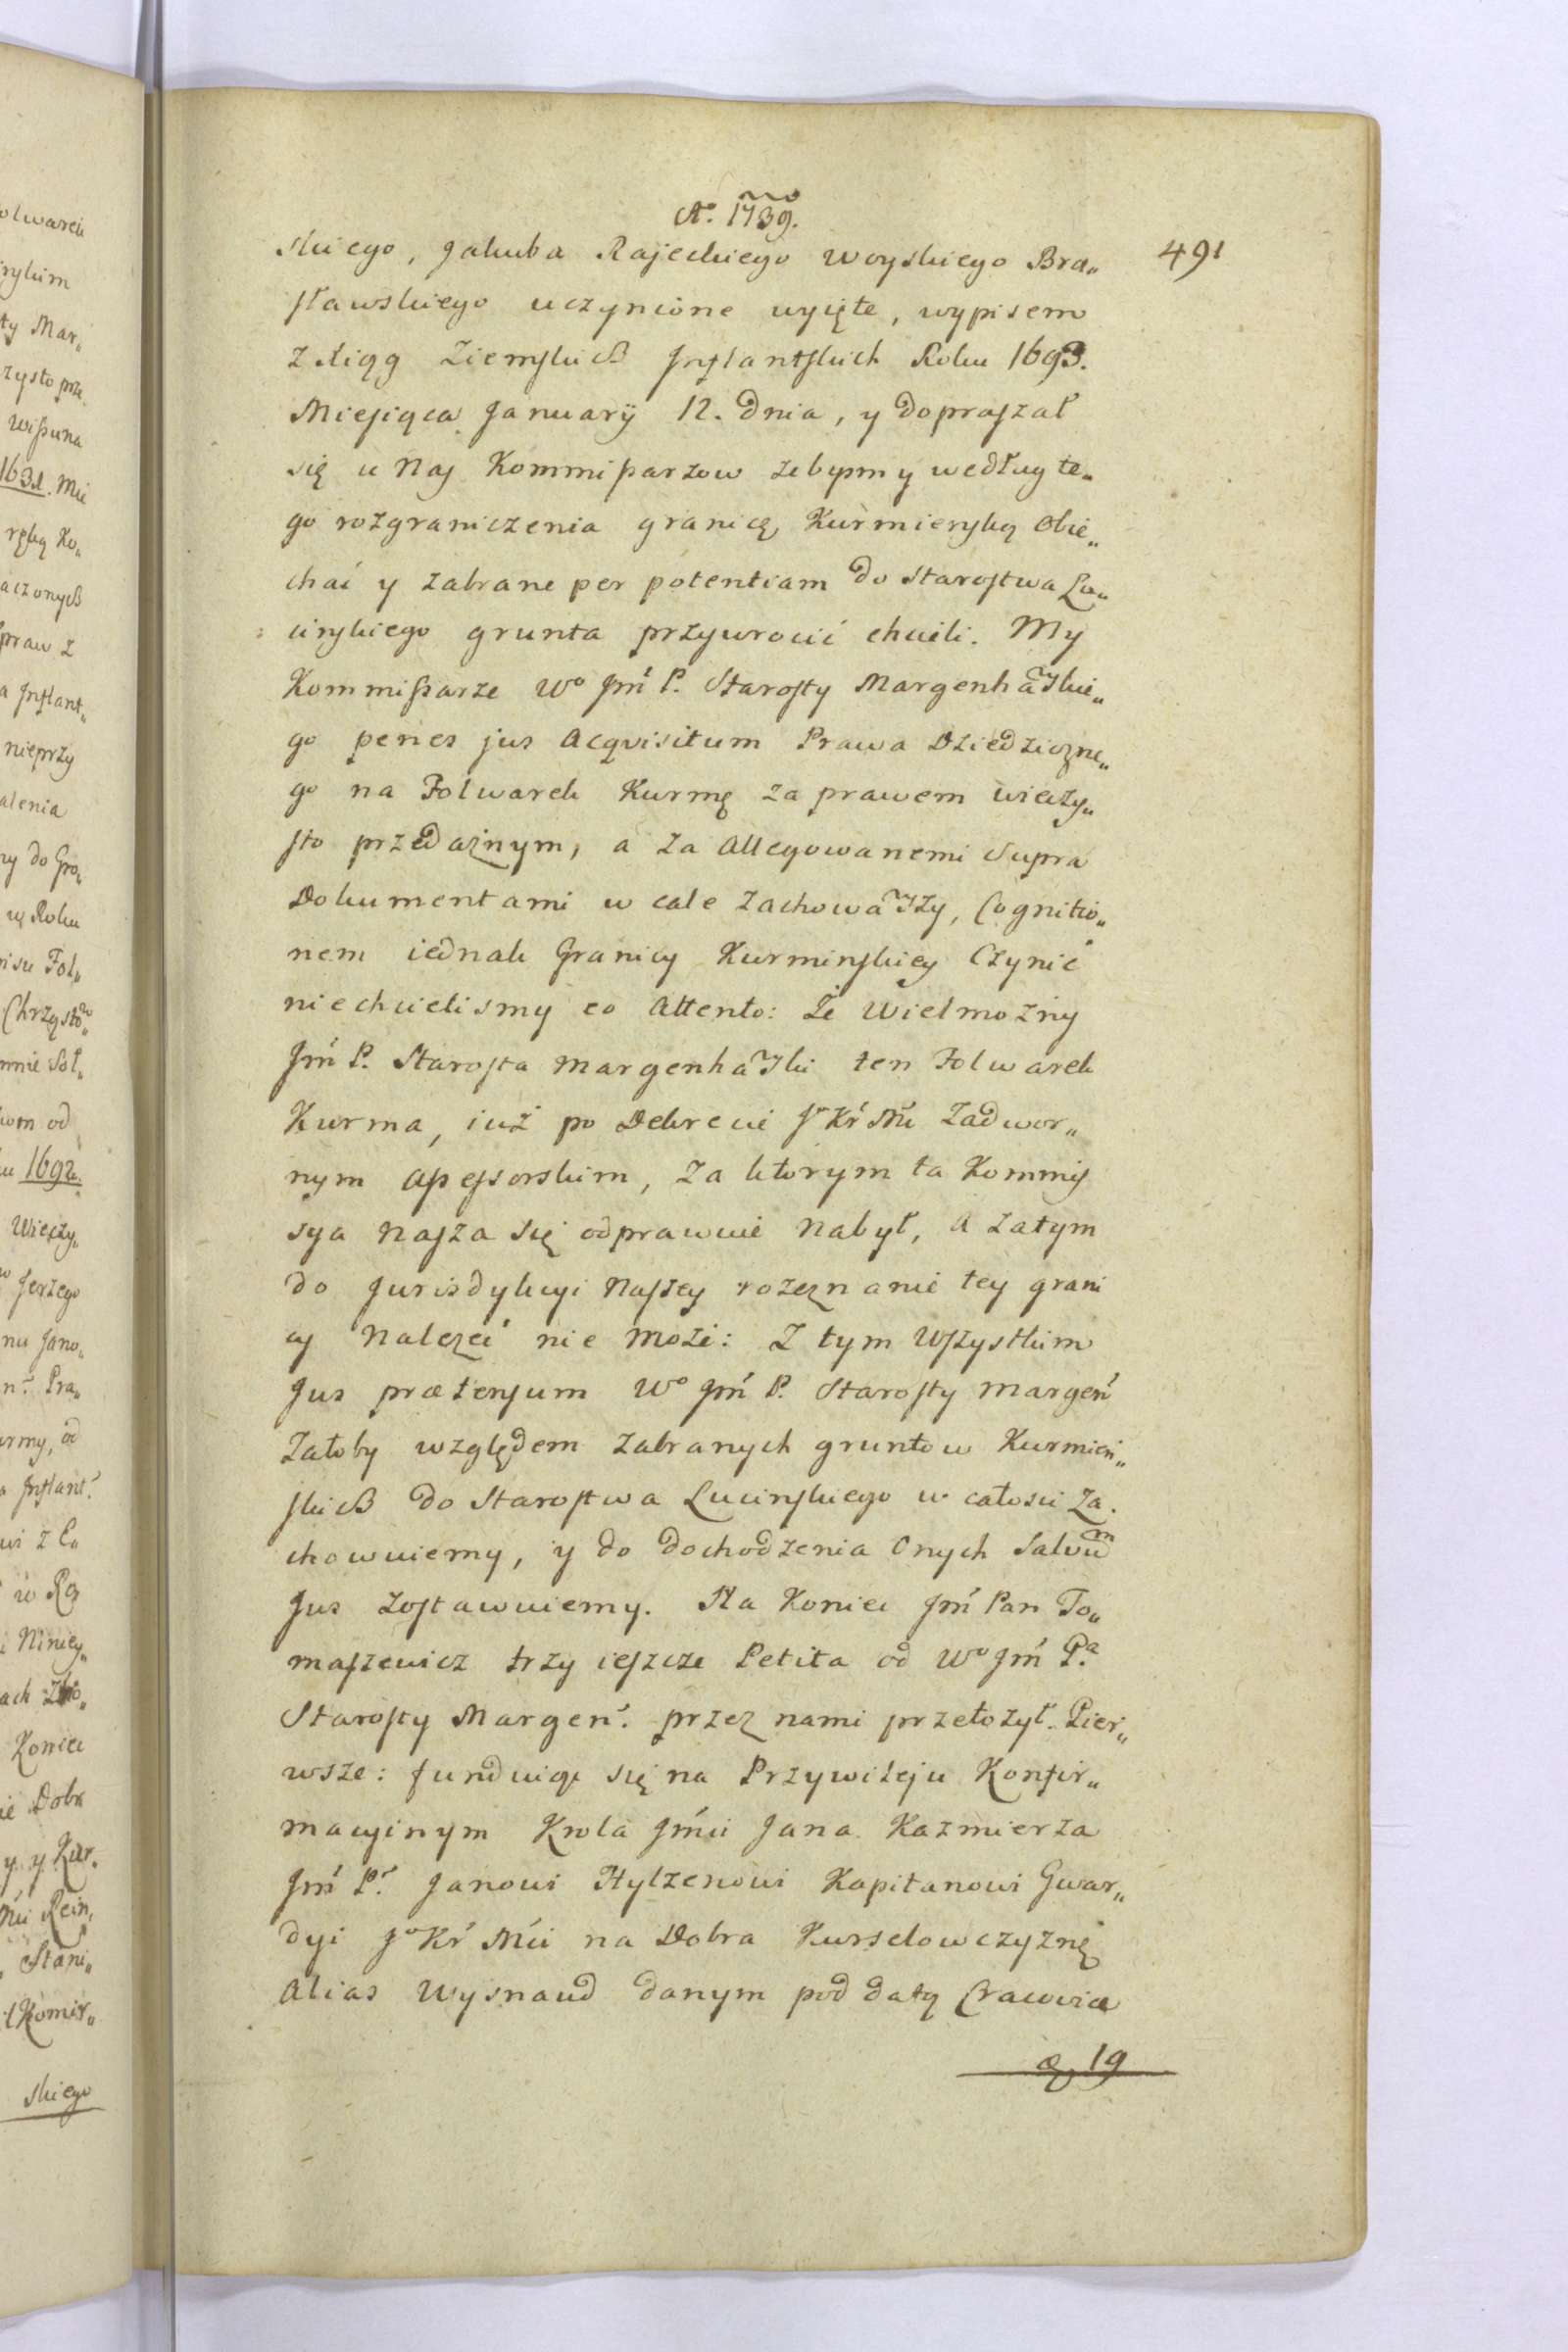 Aº. 1739.
491
skiego, Jakuba Rajeckiego Woyskiego Bra„
sławskiego uczynione wyięte, wypisem
z Xiąg Ziemskich Inflantskich Roku 1693.
Miesiąca January 12. Dnia, y dopraszał
się u Nas Kommissarzow żebysmy według te„
go rozgraniczenia granicę Kurmienską obie„
chać y zabrane per potentiam do Starostwa Lu„
cinskiego grunta przywrocić chcieli. My
Kommissarze Wº Jmć P. Starosty Margenhauskie„
go penes jus Acqvisitum Prawa Dziedziczne„
go na Folwark Kurmę za prawem wieczy„
sto przedaznym, a za Allegowanemi Supra
Dokumentami w cale zachowawszy, Cognitio„
nem iednak Granicy Kurminskiey Czynić
niechcielismy eo Attento: Że Wielmożny
Jmć P. Starosta Margenhauski ten Folwark
Kurma, iuż po Dekrecie Jº Kr Mci Zadwor„
nym Assessorskim, za ktorym ta Kommis
sya Nasza się odprawuie nabył, A zatym
do Jurisdykcyi Naszey rozeznanie tey grani
cy Nalezeć nie może: Z tym wszystkim
Jus prætensum Wº Jmć P. Starosty Margeń
Załoby względem zabranych gruntow Kurmień„
skich do Starostwa Lucinskiego w całosci za.
chowuiemy, y do dochodzenia Onych Salvum
Jus zostawuiemy. Na Koniec Jmć Pan To„
maszewicz trzy ieszcze Petita od Wº Jmć Pª
Starosty Margeń. przez nami przełozył. Pier„
wsze: funduiąc się na Przywileju Konfir„
macyinym Krola Jmci Jana Kazmierza
Jmć P. Janowi Hylzenowi Kapitanowi Gwar„
dyi Jº Kr Mci na Dobra Kurselowczyznę
Alias Wysnaud danym pod datą Cracoviæ
19